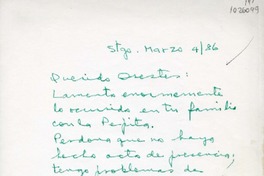 191
1026099
Stgo. Marzo 4/86
Querido Orestes:
Lamento enormemente
lo ocurrido en tu familia
con la Pepita.
Perdona que no haya
hecho acto de presencia,
tengo problemas de